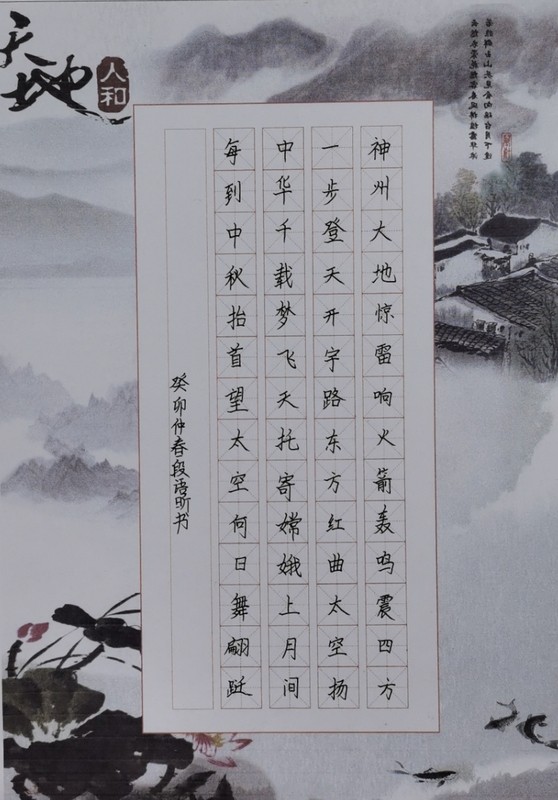 天地
人和
神州大地惊雷响火箭轰鸣震四方
一步登天开宇路东方红曲太空扬
中华千载梦飞天托寄嫦娥上月间
每到中秋抬首望太空何日舞翩跹
癸卯仲春段语昕书